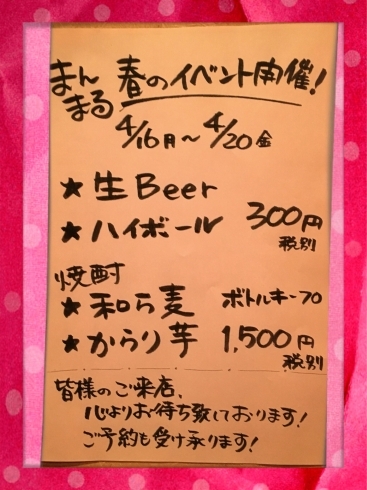 まんまる 春のイベント開催!
4/16月〜4/20金
★生Beer
★ハイボール 300円
税別
焼酎
★和ら麦 ボトルキープ
★からり芋 1,500円
税別
皆様のご来店、
心よりお待ち致しております!
ご予約も受け承ります!